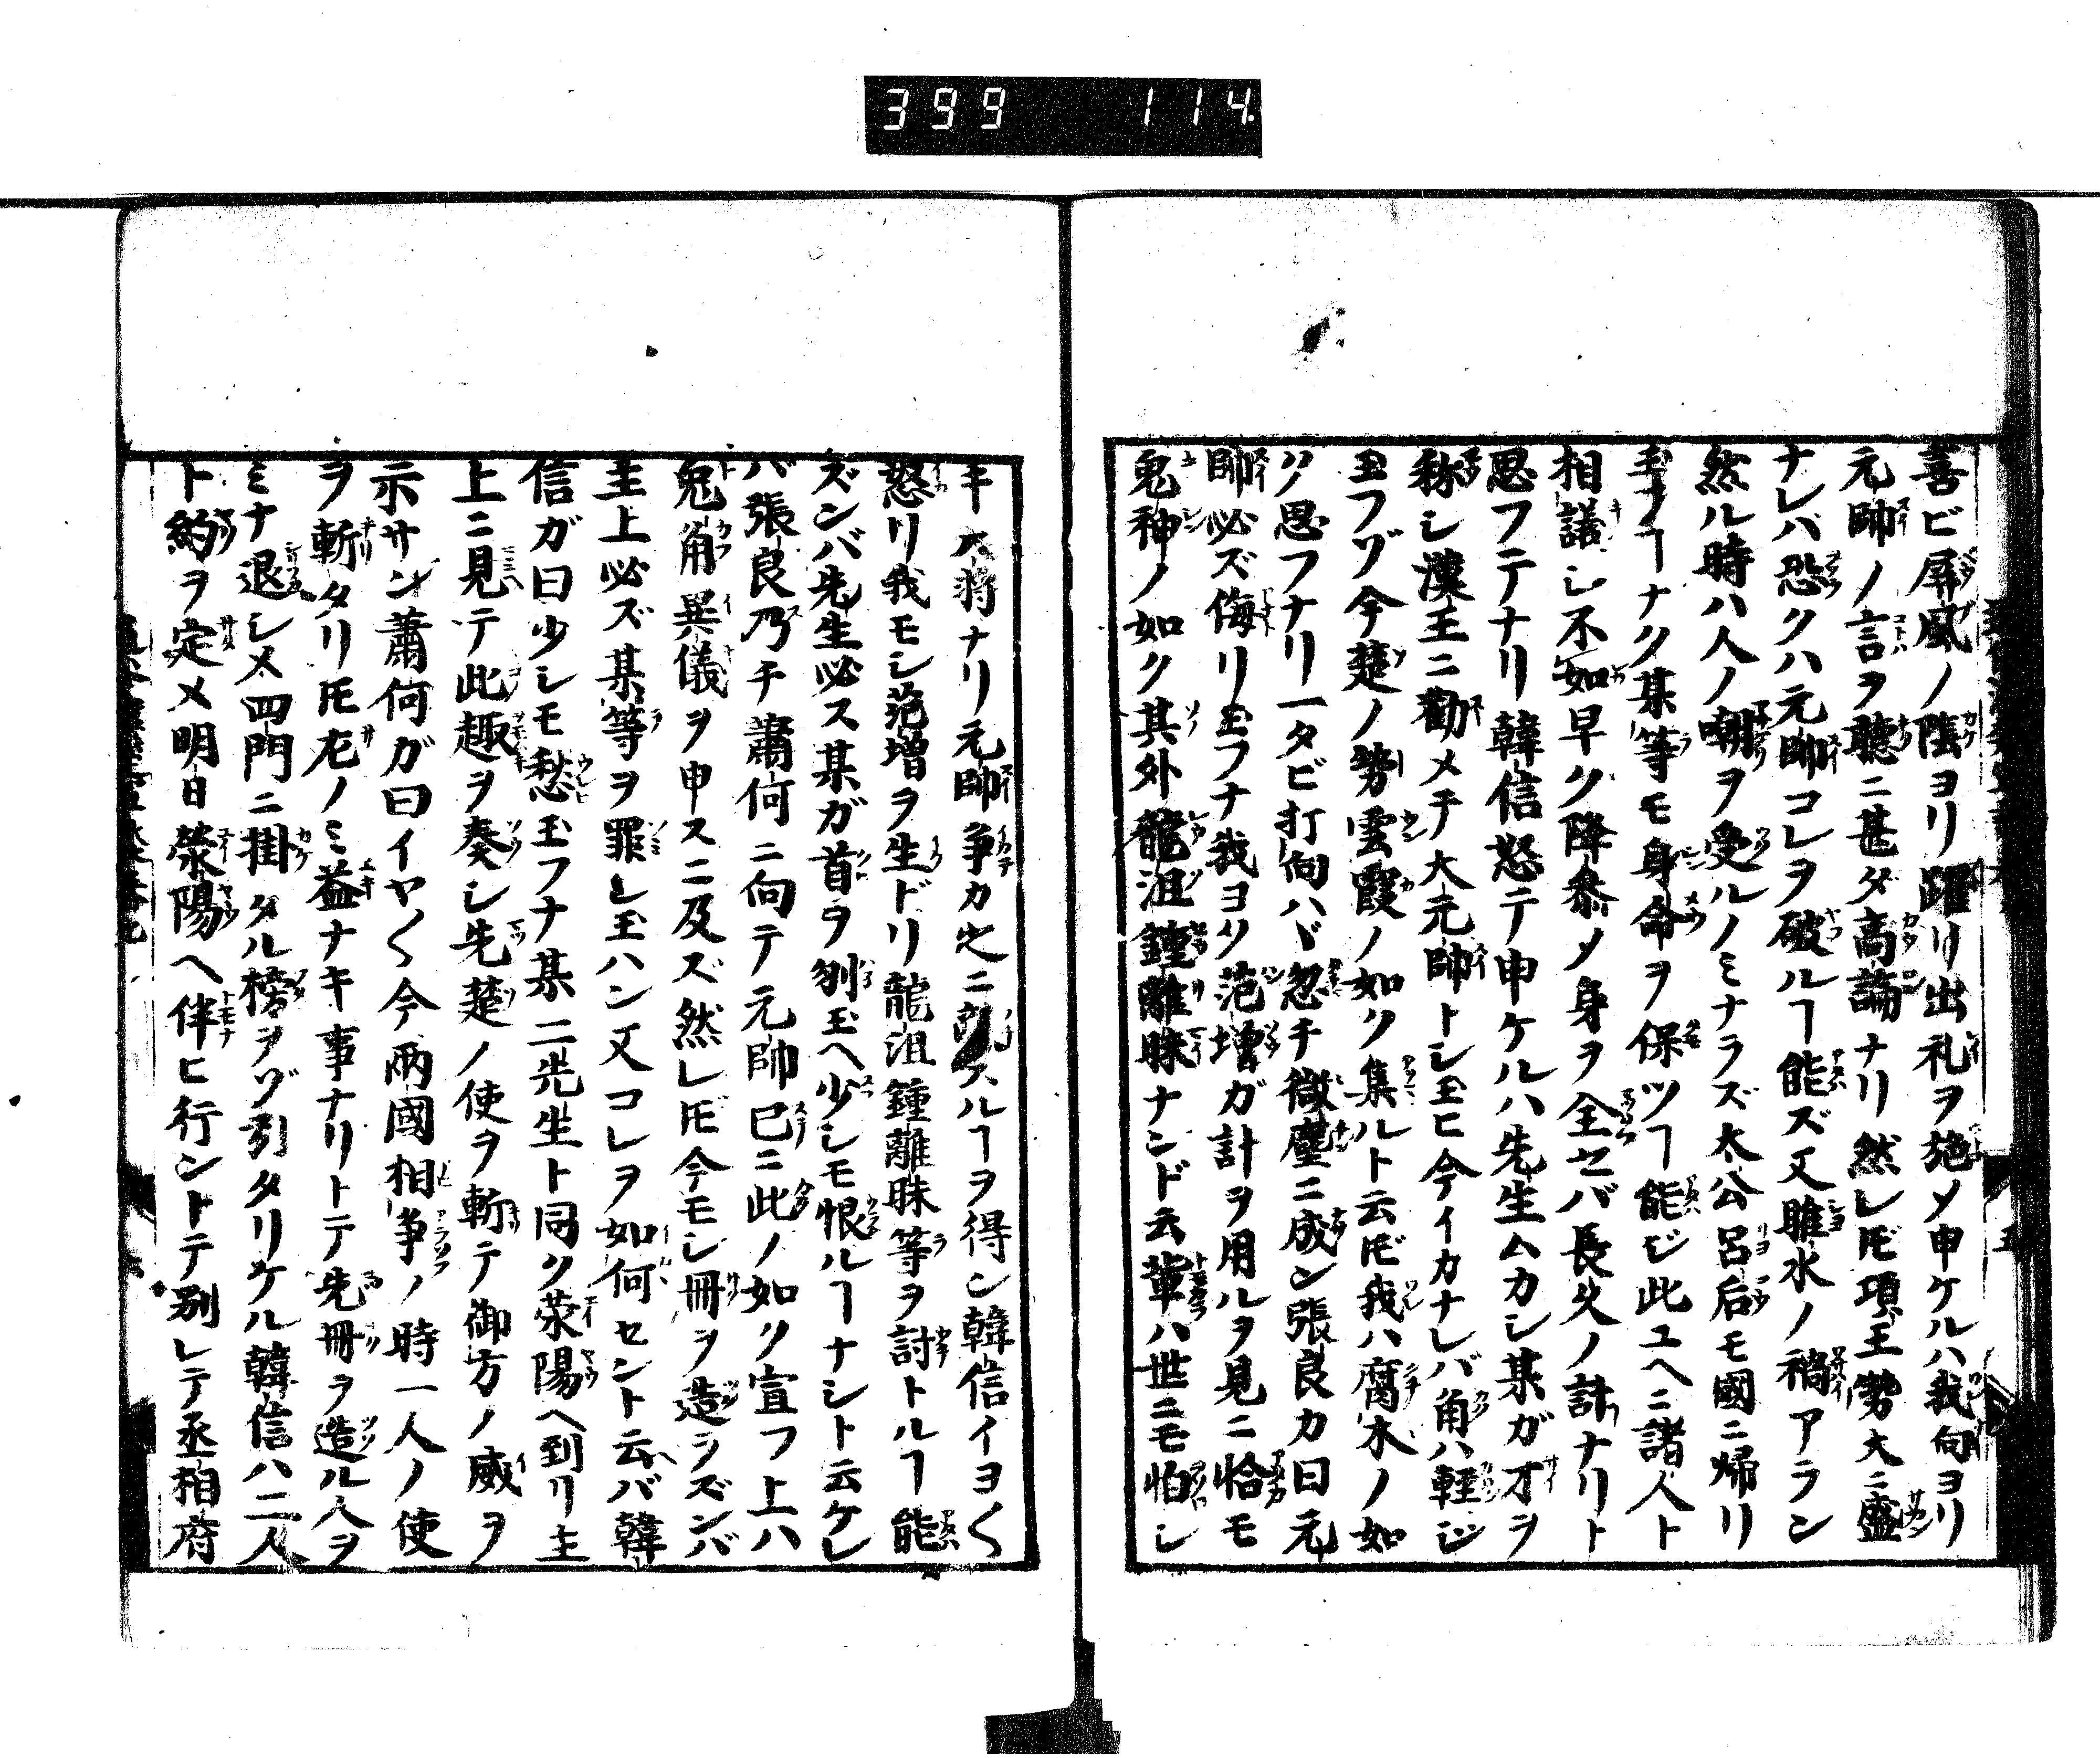 399 114
喜ビ屏風ノ陰ヨリ躍リ出礼ヲ施メ申ケルハ我向ヨリ
元帥ノ言ヲ聴ニ甚タ高論ナリ然レ𪜈項王勢大ニ盛
ナレバ恐クハ元帥コレヲ破ルヿ能ズ又睢水ノ禍アラン
然ル時ハ人ノ嘲ヲ受ルノミナラズ太公呂后モ國ニ帰リ
玉フヿナク某等モ身命ヲ保ツヿ能ジ此ユヘニ諸人ト
相議シ不如早ク降参メ身ヲ全セバ長久ノ計ナリト
思フテナリ韓信怒テ申ケルハ先生ムカシ某ガ才ヲ
称シ漢王ニ勸メテ大元帥トシ玉ヒ今イカナレバ角ハ軽シ
玉フゾ今楚ノ勢雲霞ノ如ク集ルト云𪜈我ハ腐木ノ如
ク思フナリ一タビ打向ハヾ忽チ微塵ニ成ン張良カ曰元
帥必ズ侮リ玉フナ我ヨク范増ガ計ヲ用ルヲ見ニ恰モ
鬼神ノ如ク其外龍沮鍾離昧ナンド云輩ハ世ニモ怕シ
キ大将ナリ元帥争カ之ニスルヿヲ得ン韓信イヨ〱
怒リ我モシ范増ヲ生ドリ龍沮鍾離昧等ヲ討トルヿ能
ズンバ先生必ス某ガ首ヲ刎玉ヘ少シモ恨ルヿナシト云ケレ
バ張良乃チ蕭何ニ向テ元帥已ニ此ノ如ク宣フ上ハ
兎角異儀ヲ申スニ及ズ然レ𪜈今モシ冊ヲ造ラズンバ
主上必ズ某等ヲ罪シ玉ハン又コレヲ如何セント云バ韓
信ガ曰少シモ愁玉フナ某二先生ト同ク荥陽ヘ到リ主
上ニ見テ此趣ヲ奏シ先楚ノ使ヲ斬テ御方ノ威ヲ
示サン蕭何ガ曰イヤ〱今兩國相争ノ時一人ノ使
ヲ斬タリ𪜈左ノミ益ナキ事ナリトテ先冊ヲ造ル人ヲ
ミナ退シメ四門ニ掛タル榜ヲゾ引タリケル韓信ハ二人
ト約ヲ定メ明日荥陽ヘ伴ヒ行ントテ別レテ丞相府